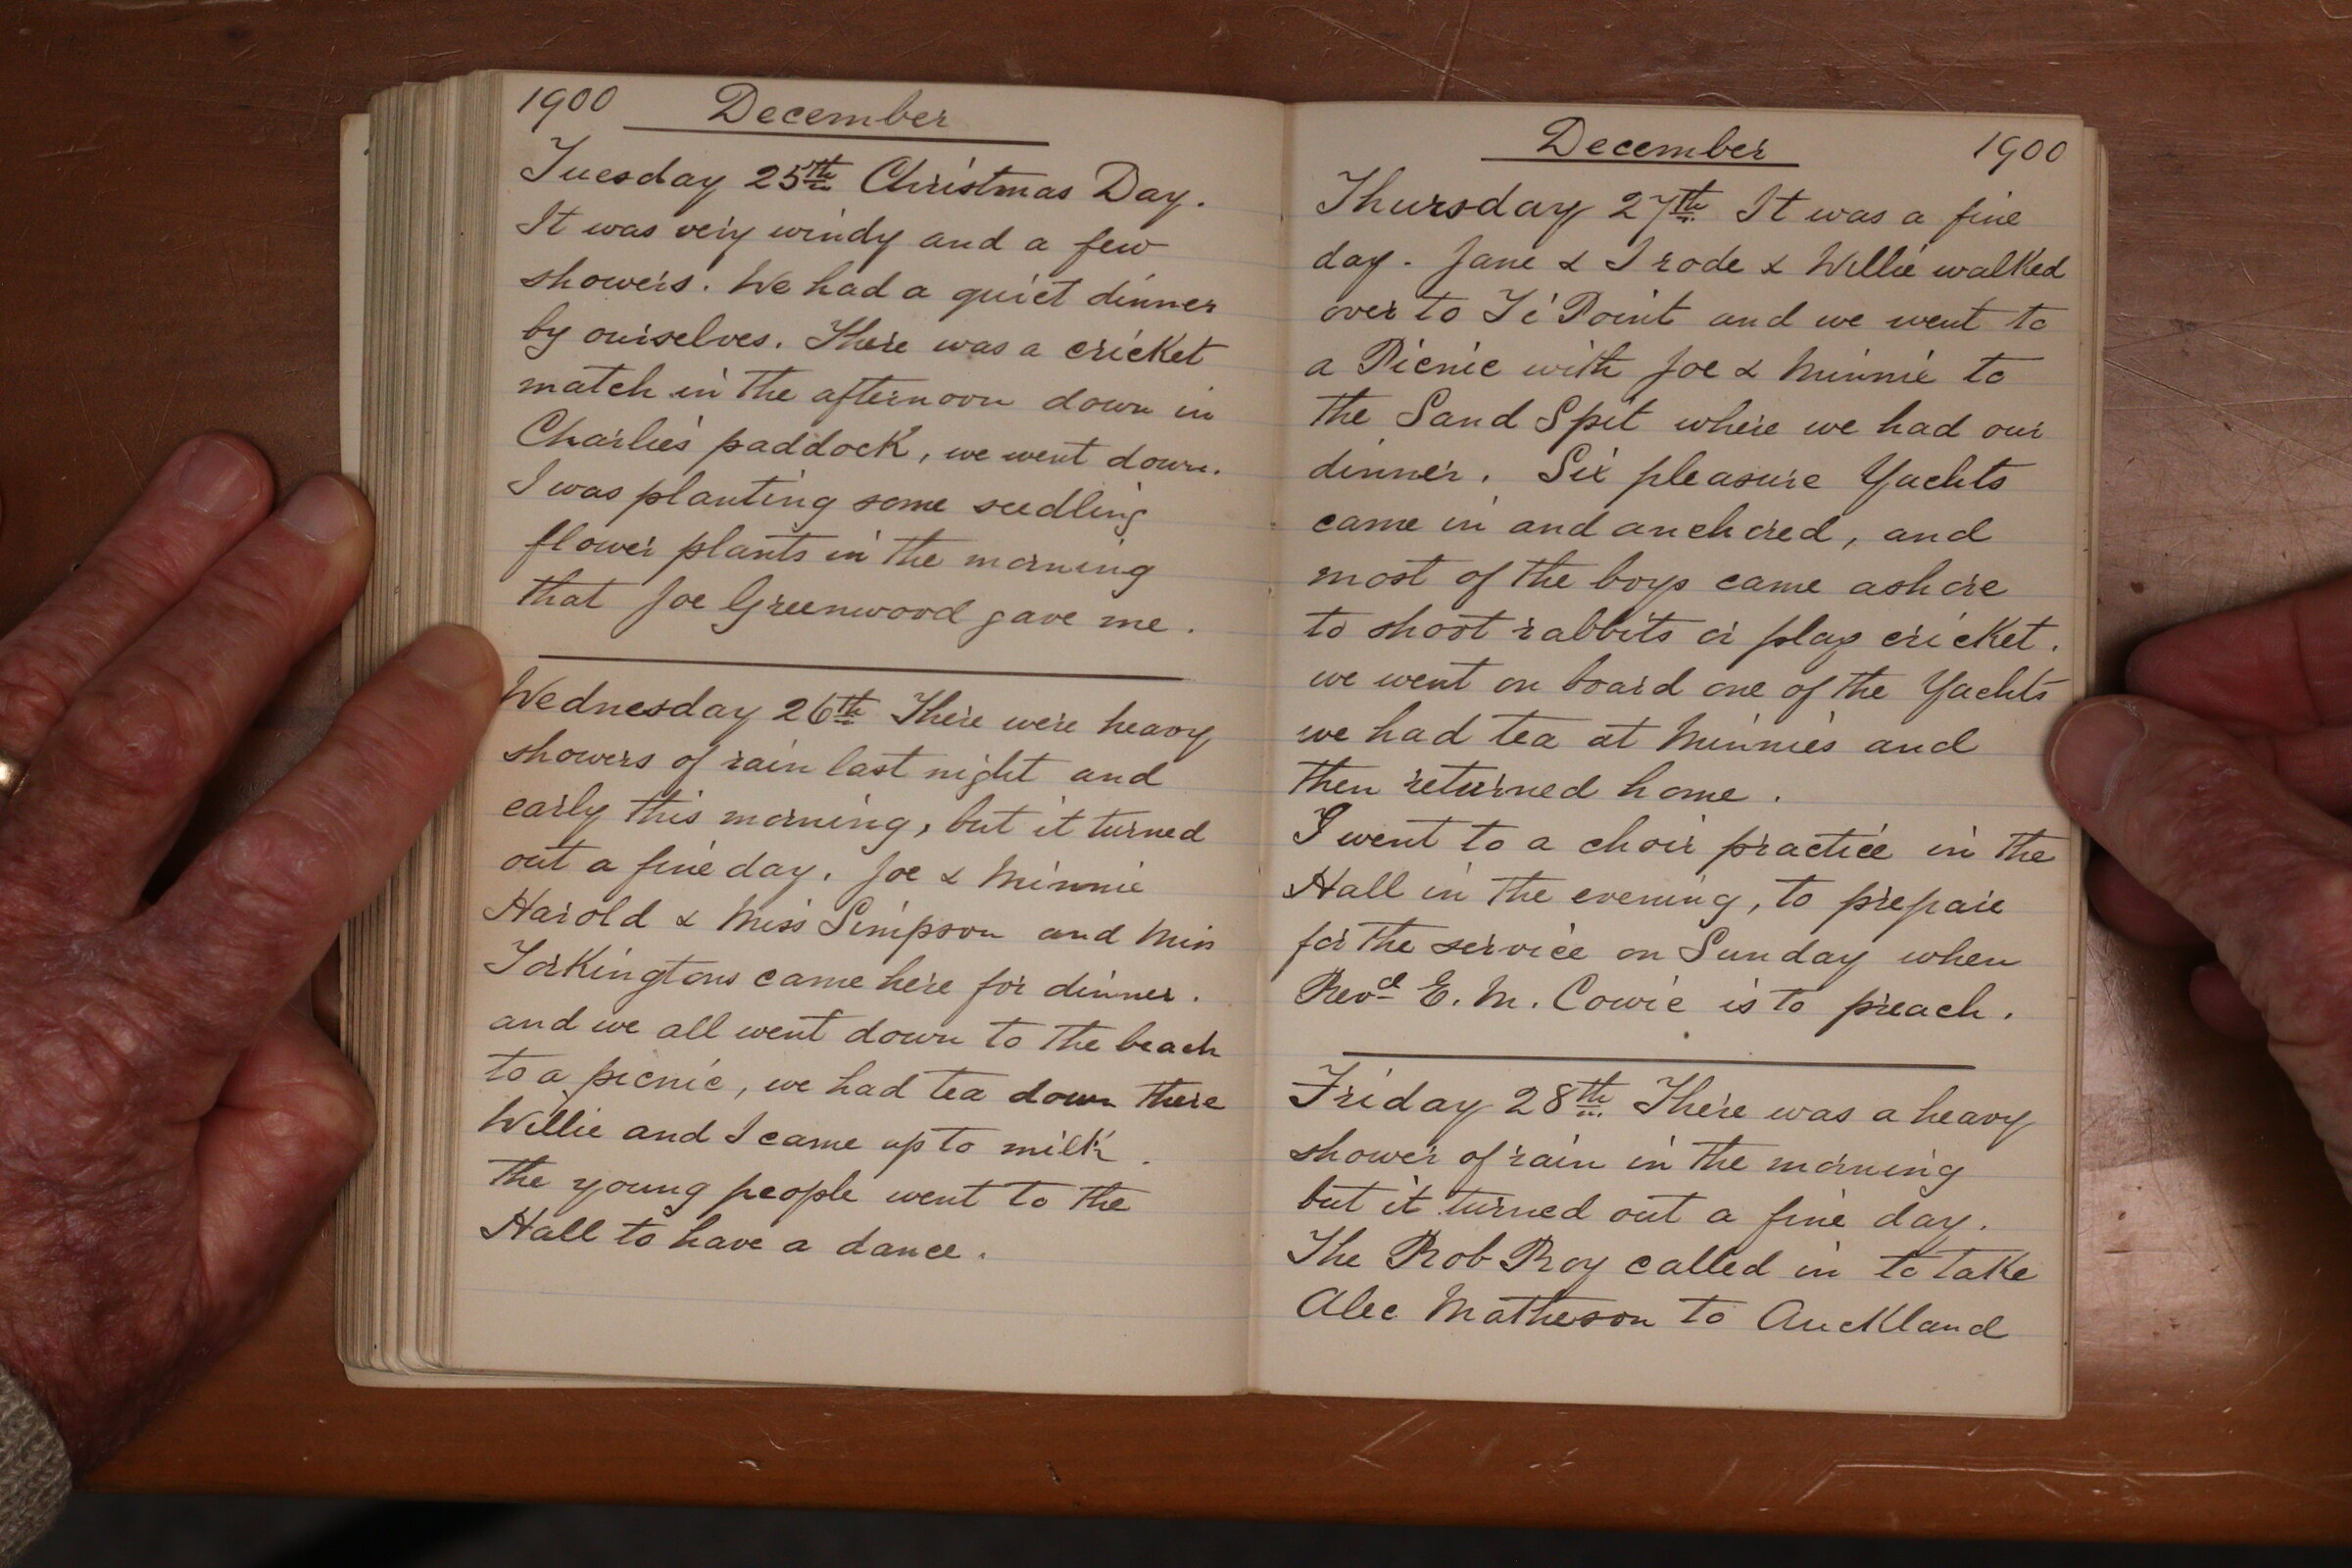 1900 December
Tuesday 25th Christmas Day.
It was very windy and a few
showers. We had a quiet dinner
by ourselves. There was a cricket
match in the afternoon down in
Charlie's paddock, we went down.
I was planting some seedling
flower plants in the morning
that Joe Greenwood gave me.
Wednesday 26th There were heavy
showers of rain last night and
early this morning, but it turned
out a fine day. Joe & Minnie
Harold & Miss Simpson and Miss
Torkingtons came here for dinner.
and we all went down to the beach
to a picnic, we had tea down there
Willie and I came up to milk.
The young people went to the
Hall to have a dance.
December 1900
Thursday 27th It was a fine
day. Jane & I rode & Willie walked
over to Ti Point and we went to
a Picnic with Joe & Minnie to
the Sand Spit where we had our
dinner. Six pleasure Yachts
came in and anchored, and
most of the boys came ashore
to shoot rabbits or play cricket.
we went on board one of the Yachts
we had tea at Minnie's and
then returned home.
I went to a choir practice in the
Hall in the evening, to prepare
for the service on Sunday when
Revd E. M. Cowie is to preach.
Friday 28th There was a heavy
shower of rain in the morning
but it turned out a fine day.
The Rob Roy called in to take
Alec Matheson to Auckland